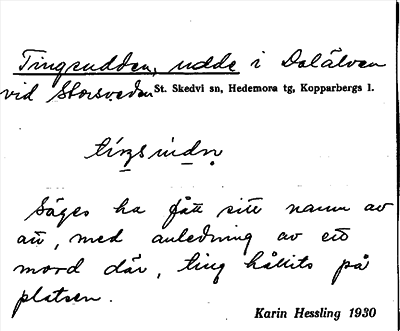 Tingsudden, udde i Dalälven
vid Storsveden St. Skedvi sn, Hedemora tg, Kopparbergs l.
tíŋsųdn
Säges ha fått sitt namn av
att, med anledning av ett
mord där, ting hållits på
platsen.
Karin Hessling 1930